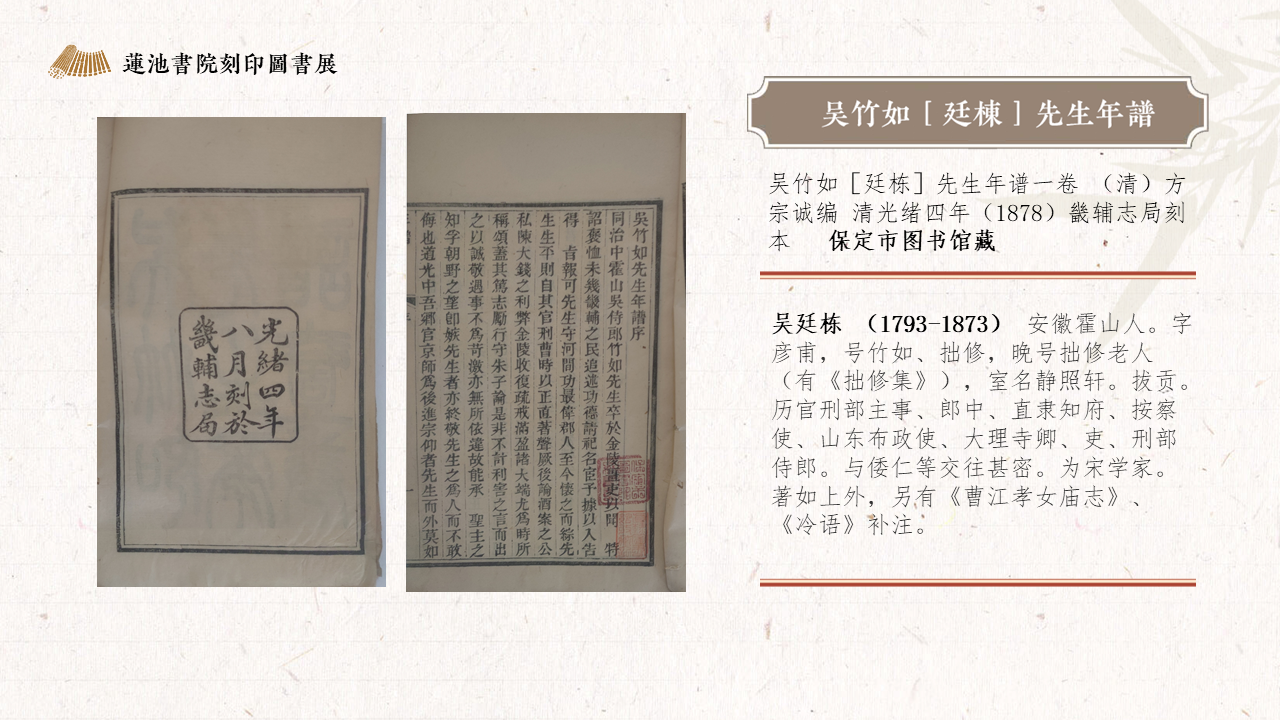 蓮池書院刻印圖書展
光緒四年
八月刻於
畿輔志局
吳竹如先生年譜序
同治中霍山吳侍郎竹如先生卒於金陵疆吏以聞 特
詔褒恤未幾畿輔之民追述功德請祀名臣予據以入告
得 旨報可先生守河間功最偉郡人至今懷之而綜先
生生平則自其官刑曹時以正直著聲厥後論酒案之公
私陳大錢之利弊金陵收復疏戒滿盈諸大端尤爲時所
稱頌蓋其篤志勵行守朱子論是非不計利害之言而出
之以誠敬遇事不爲苛激亦無所依違故能承 聖主之
知孚朝野之望卽嫉先生者亦終敬先生之爲人而不敢
侮也道光中吾鄉官京師爲後進宗仰者先生而外莫如
吴竹如［廷棟］先生年譜
吴竹如［廷栋］先生年谱一卷 （清）方
宗诚编 清光绪四年（1878）畿辅志局刻
本 保定市图书馆藏
吴廷栋 （1793-1873） 安徽霍山人。字
彦甫，号竹如、拙修，晚号拙修老人
（有《拙修集》），室名静照轩。拔贡。
历官刑部主事、郎中、直隶知府、按察
使、山东布政使、大理寺卿、吏、刑部
侍郎。与倭仁等交往甚密。为宋学家。
著如上外，另有《曹江孝女庙志》、
《冷语》补注。